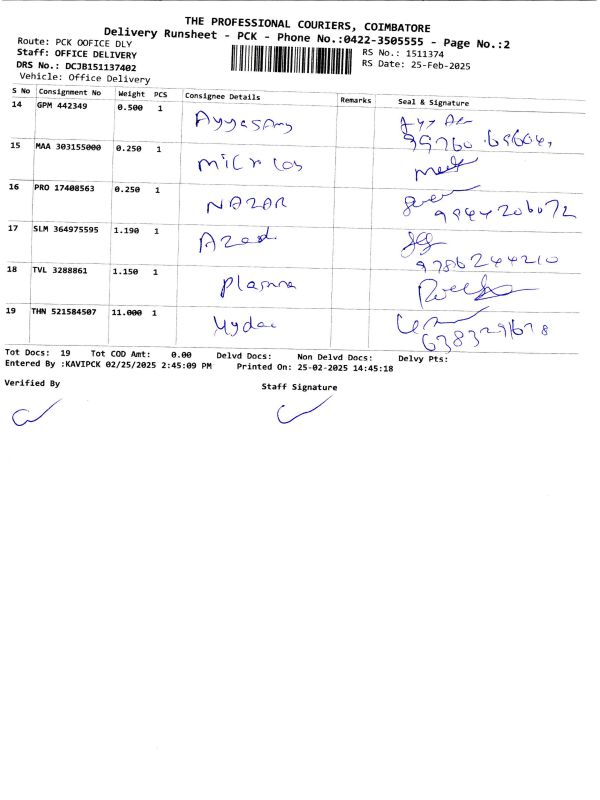 THE PROFESSIONAL COURIERS, COIMBATORE
Delivery Runsheet - PCK - Phone No.:0422-3505555 - Page No.:2
Route: PCK OOFICE DLY RS No.: 1511374
Staff: OFFICE DELIVERY RS Date: 25-Feb-2025
DRS No.: DCJB151137402
Vehicle: Office Delivery
S No Consignment No Weight PCS Consignee Details Remarks Seal & Signature
14 GPM 442349 0.500 1 Ayyasamy
15 MAA 303155000 0.250 1 Micr
16 PRO 17408563 0.250 1 NAZAR 9944206072
17 SLM 364975595 1.190 1 Azad 9786244210
18 TVL 3288861 1.150 1 Plasma
19 THN 521584507 11.000 1
Tot Docs: 19 Tot COD Amt: 0.00 Delvd Docs: Non Delvd Docs: Delvy Pts:
Entered By :KAVIPCK 02/25/2025 2:45:09 PM Printed On: 25-02-2025 14:45:18
Verified By Staff Signature